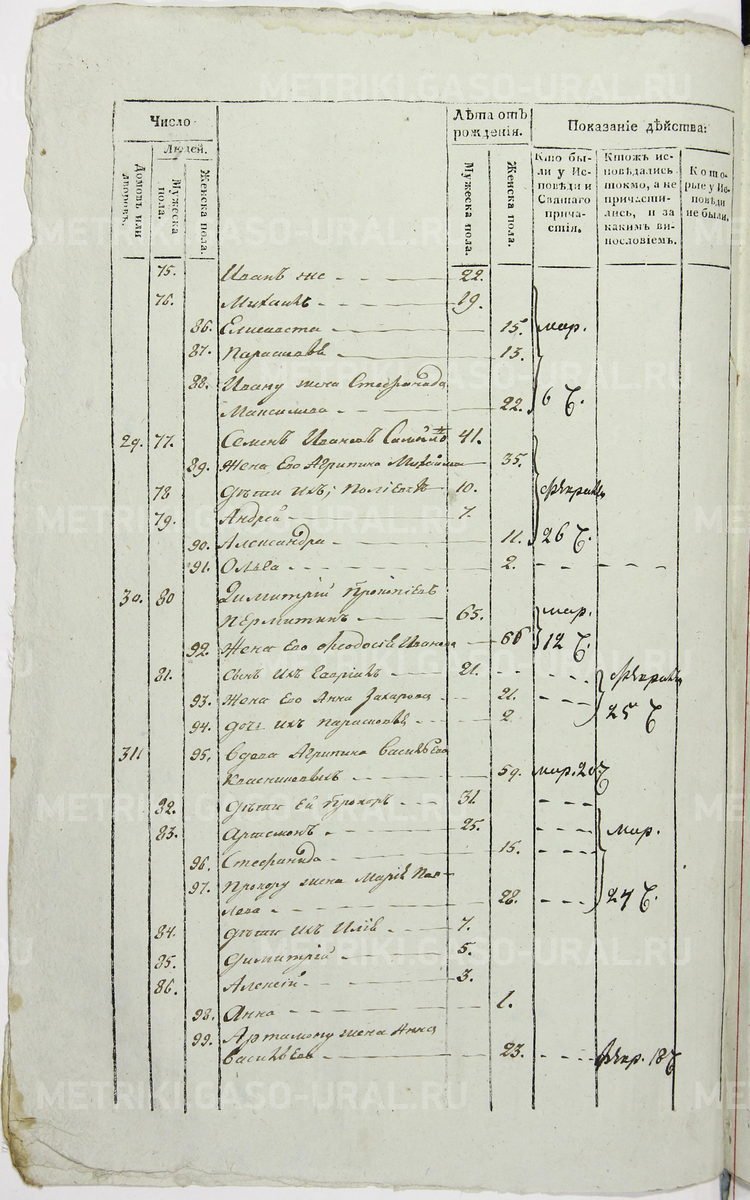 METRIKI.GASO-URAL.RU
Число
Людей.
Домовъ или дворовъ.
Мужеска пола.
Женска пола.
Лѣта отъ рожденія.
Мужеска пола.
Женска пола.
Показаніе дѣйства:
Кто бы-
ли у Ис-
повѣди и
Святаго
прича-
стія.
Ктожъ ис-
повѣдались
токмо, а не
причасти-
лись, и за
какимъ ви-
нословіемъ.
Кото-
рые у Ис-
повѣди
не были.
75. Иванъ же 22.
76. Михаилъ 19.
86. Елисавета 15. мар.
87. Парасковья 13.
88. Ивану жена Стефанида
Максимова 22. 6 Ч.
29. 77. Семенъ Ивановъ 41.
89. Жена Его Агрипина 35.
78 Дѣти ихъ; 10.
79. Андрей 7.
90. Александра 11. 26 Ч.
91. Ольга 2.
30. 80 Димитрій Прокопіевъ
Пермитинъ 65. мар.
92. Жена Его Феодосія Иванова 66 12 Ч.
81. Сынъ ихъ 21.
93. Жена Его Анна Захарова 21. 25 Ч
94. Дочь ихъ Парасковья 2
31 95. Вдова Агрипина Васильева
59. мар. 20 Ч
82. Дѣти Ей Прохоръ 31.
83. Артемонъ 25. мар.
96. Стефанида 15.
97. Прохору жена Марія Пав-
лова 28. 27 Ч.
84. Дѣти ихъ Илія 7.
85. Димитрій 5.
86. Алексій 3.
98. Анна 1.
99. Артамону жена Анна
Васильева 23. 18 Ч